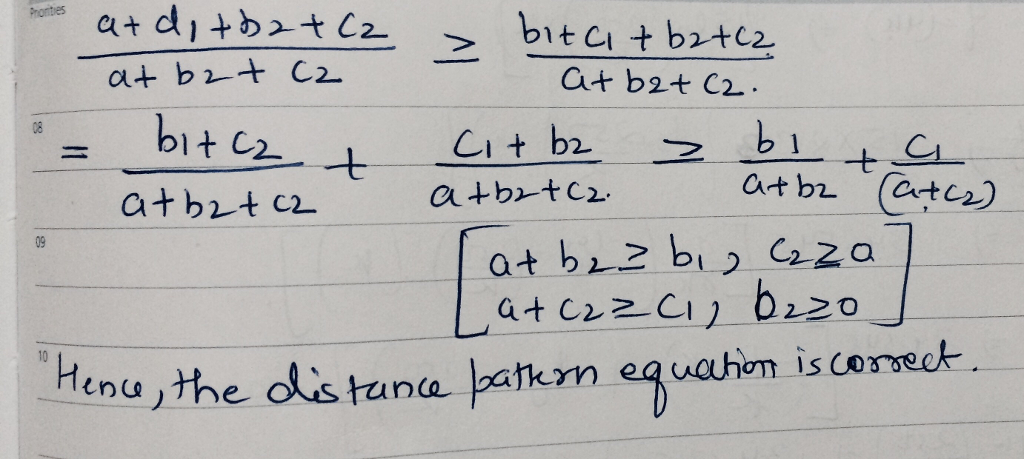 Priorities
a + d1 + b2 + c2 / a + b2 + c2 ≥ b1 + c1 + b2 + c2 / a + b2 + c2.
08
= b1 + c2 / a + b2 + c2 + c1 + b2 / a + b2 + c2. ≥ b1 / a + b2 + c1 / (a + c2)
09
[ a + b2 ≥ b1, c2 ≥ a
a + c2 ≥ c1, b2 ≥ 0 ]
10
Hence, the distance pattern equation is correct.